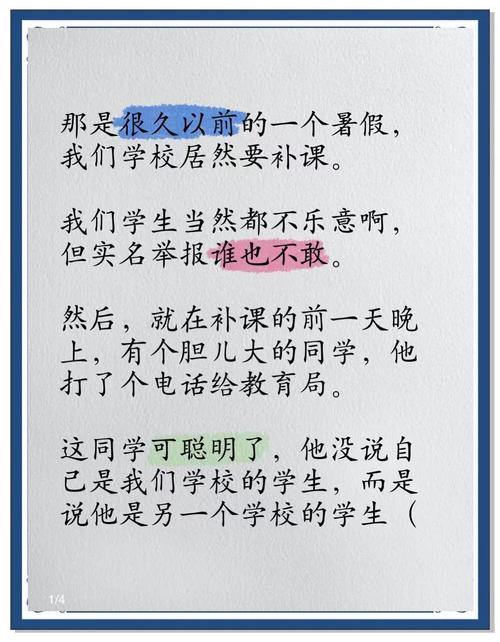 那是很久以前的一个暑假，
我们学校居然要补课。
我们学生当然都不乐意啊，
但实名举报谁也不敢。
然后，就在补课的前一天晚
上，有个胆儿大的同学，他
打了个电话给教育局。
这同学可聪明了，他没说自
己是我们学校的学生，而是
说他是另一个学校的学生（
1/4